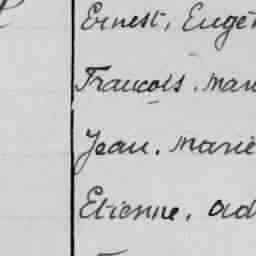 Ernest, Eugèn
Francois, mari
Jean, marie
Etienne, ad